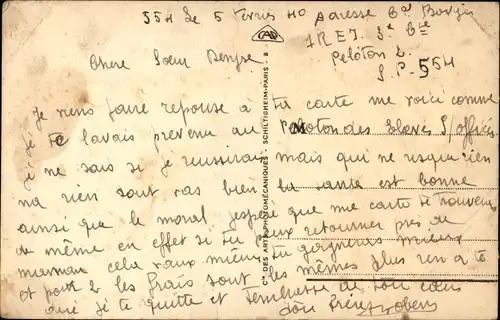 554 Le 5 Fevrier 40 Adresse
1 R E I
Peloton 2
S.P. 554
Chere Sœur Denyse
Je viens faire reponse à ta carte me voici comme
je te lavais prevenu au Peloton des Eleves S/officiers
je ne sais si je reussirai mais qui ne risque rien
na rien sont pas bien la sante est bonne
ainsi que le moral jespere que ma carte te trouvera
de même en effet si tu peux retourner près de
maman cela vaux mieux tu gagneras mieux
et pour les frais sont les mêmes plus rien a te
dire je te quitte et Tembrasse de tout cœur
ton frère Robert
Cie DES ARTS PHOTOMECANIQUES - SCHILTIGHEIM-PARIS - 8 -
CAP